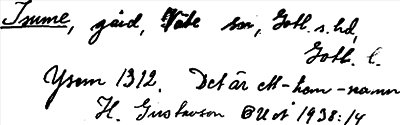 Isume, gård, Väte sn, Gotl. s. hd,
Gotl. l.
Ysem 1312. Det är ett -hem-namn
H. Gustavson OUoÅ 1938:14